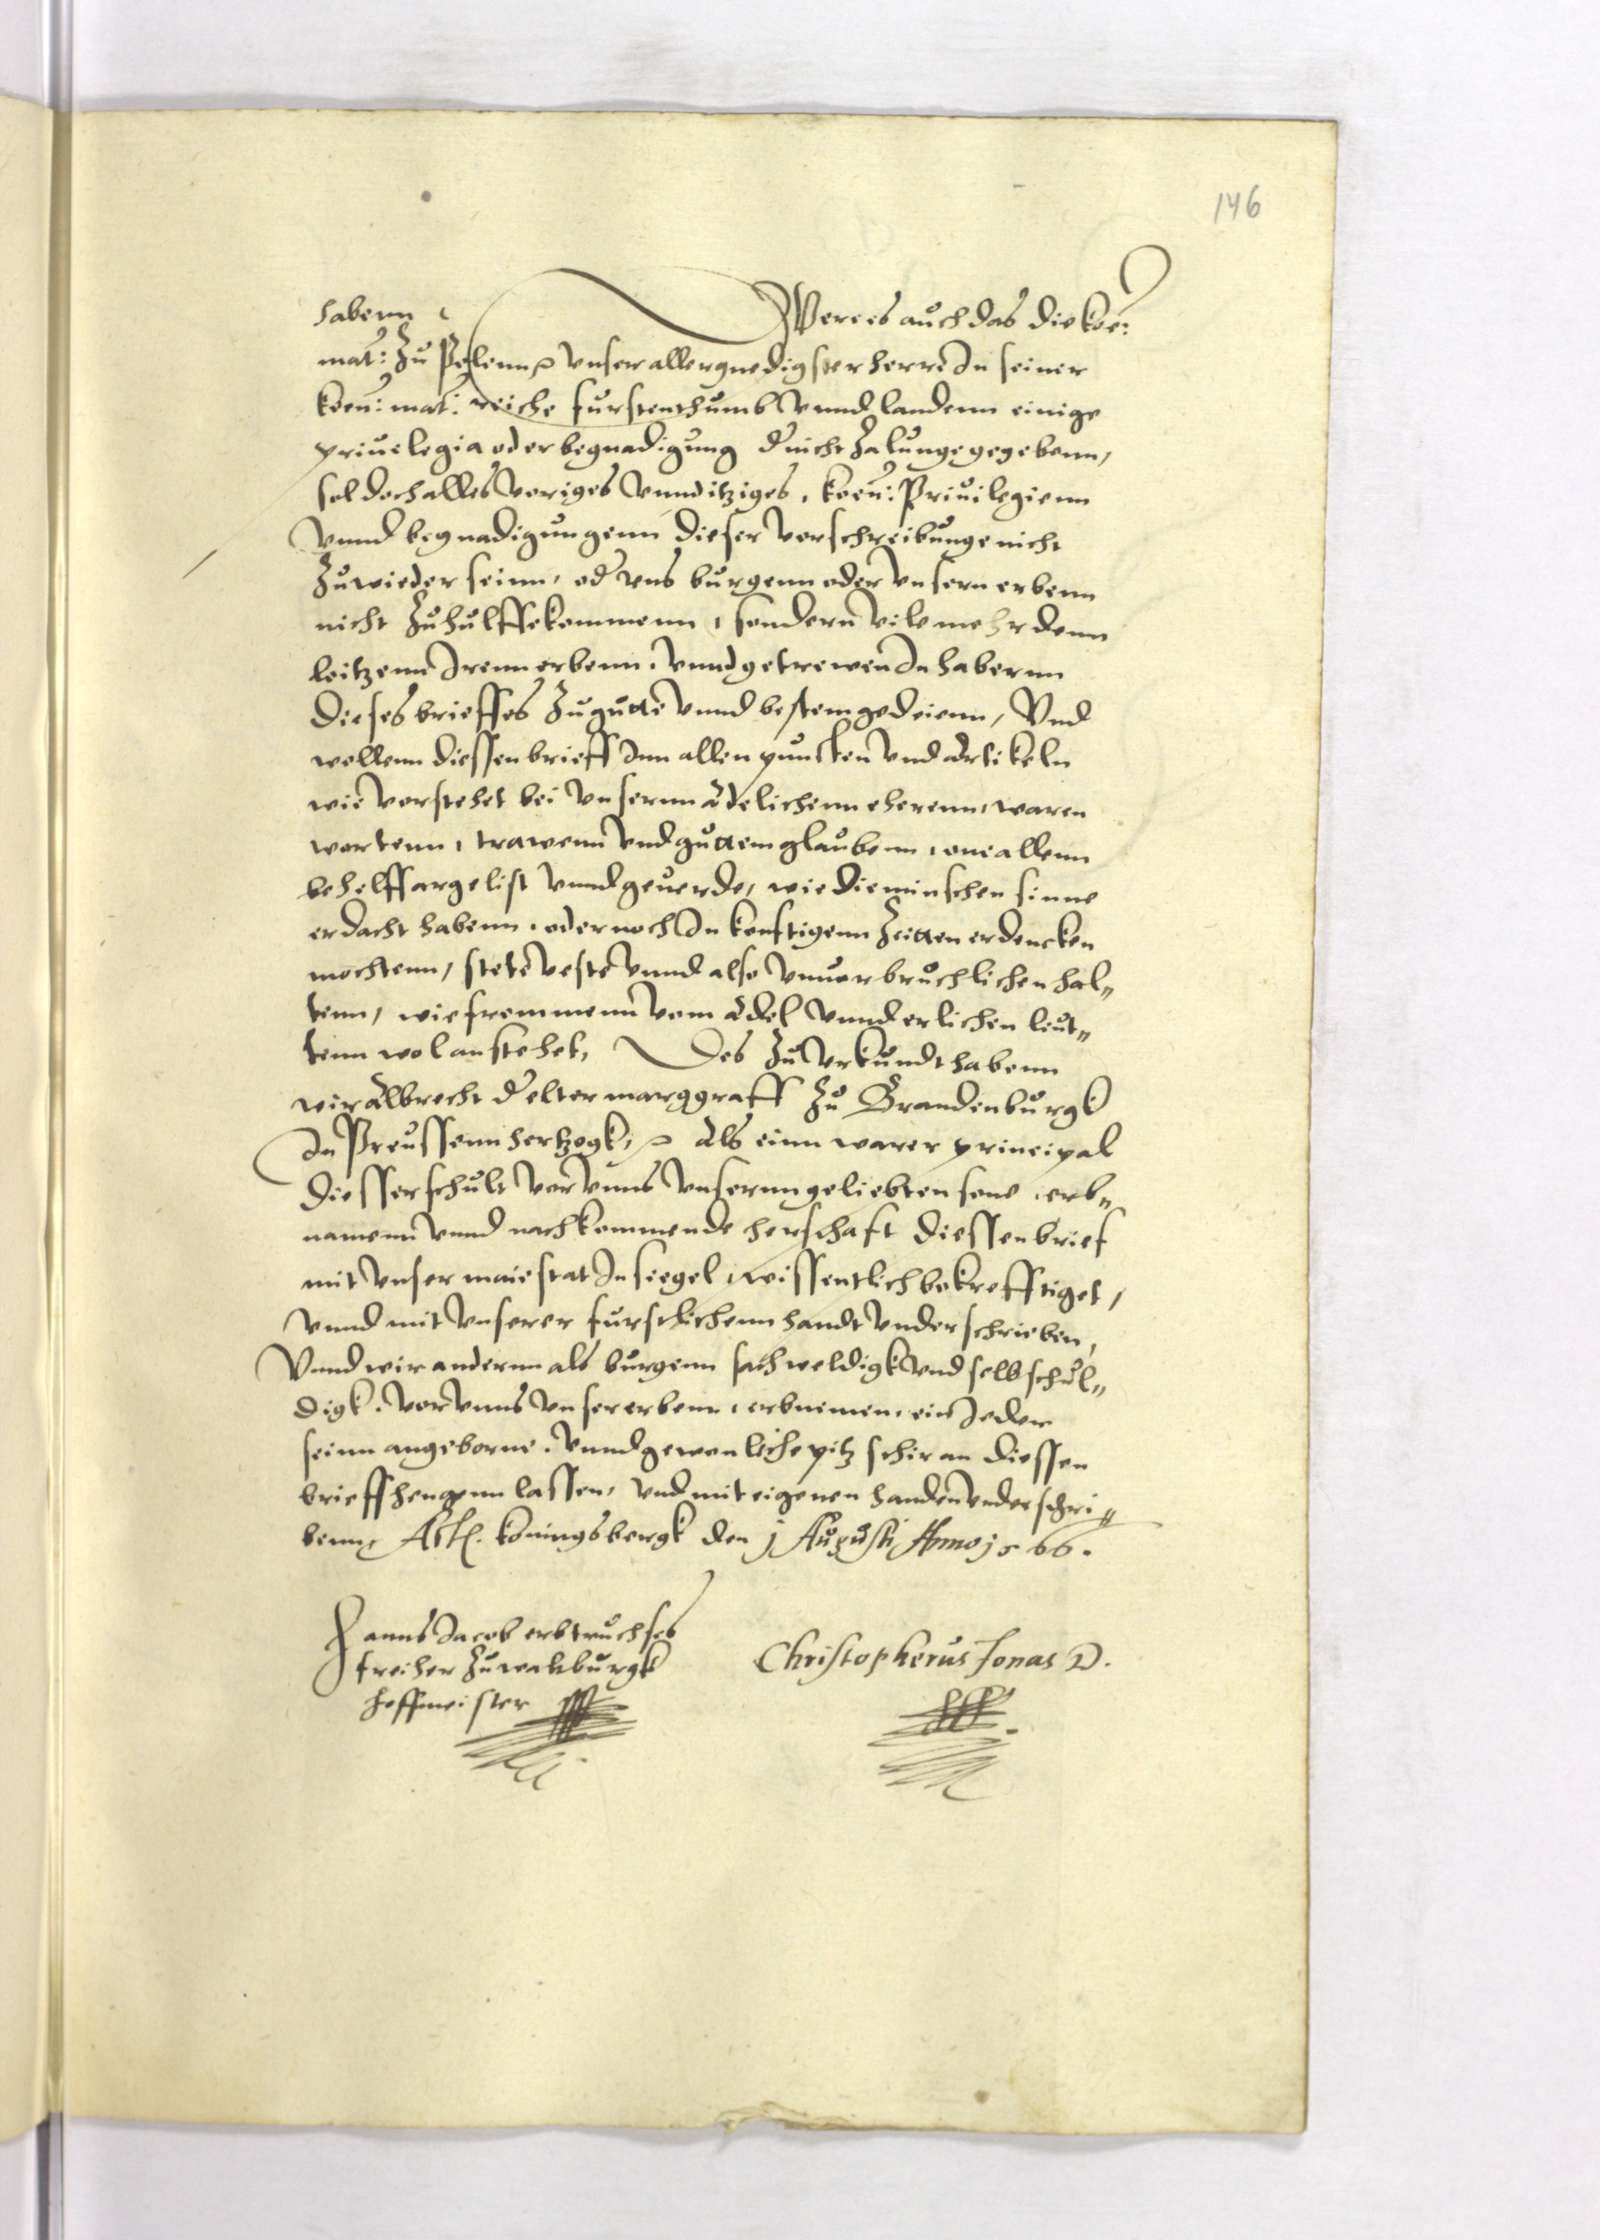 146
habenn Were es auch das die koe:
mat: zu Polenn unser allergnedigster herre In seiner
koen: mat: reiche furstenthumb unnd landenn einige
privelegia oder begnadigung d nicht zalunge gegebenn,
sol doch alles voriges unnd itziges, koen: Privilegienn
unnd begnadigungenn dieser vorschreibunge nicht
zuwieder seinn, od uns burgenn oder unsern erbenn
nicht zuhulffe kommenn, sondern vile mehr denn
leitzenn Irenn erbenn, unnd getrewen Inhabernn
dieses brieffes zugutte unnd bestem gedeienn, Und
wollenn diessen brieff Inn allen puncten und artikeln
wie vorstehet bei unsernn adelichenn eherenn, waren
wortenn, trawenn und guttem glaubenn, one allenn
behelff argelist unnd geuerde, wie die minschen sinne
erdacht habenn, oder noch In konftigenn zeitten erdencken
mochtenn, stete veste unnd also unuorbruchlichen hal„
tenn, wie frommenn vom adel unnd erlichen leut„
tenn wol anstehet, Des zu urkundt habenn
wir albrecht d elter marggraff zu Brandenburgk
In Preussenn hertzogk, als einn warer principal
diesser schult vor unns unsernn geliebten sone, erb„
namenn unnd nachkommende herschaft diessen brief
mit unser maiestat Insiegel, wissentlich bekrefftiget,
unnd mit unserer furstlichenn handt underschrieben,
Unnd wir andernn als burgenn sachweldigk und selbschul„
digk, vor unns unser erbenn, erbnemen, ein Ieder
seinn angeborne, unnd gewonliche pitzschir an diessen
brieff hengenn lassen, und mit eigenen handen underschri„
benn, Actu. konningsbergk den j Augusti Anno j566.
Hanns Iacob erbtruchses
freiher zu walburgk
hoffmeister
Christopherus Ionas D.